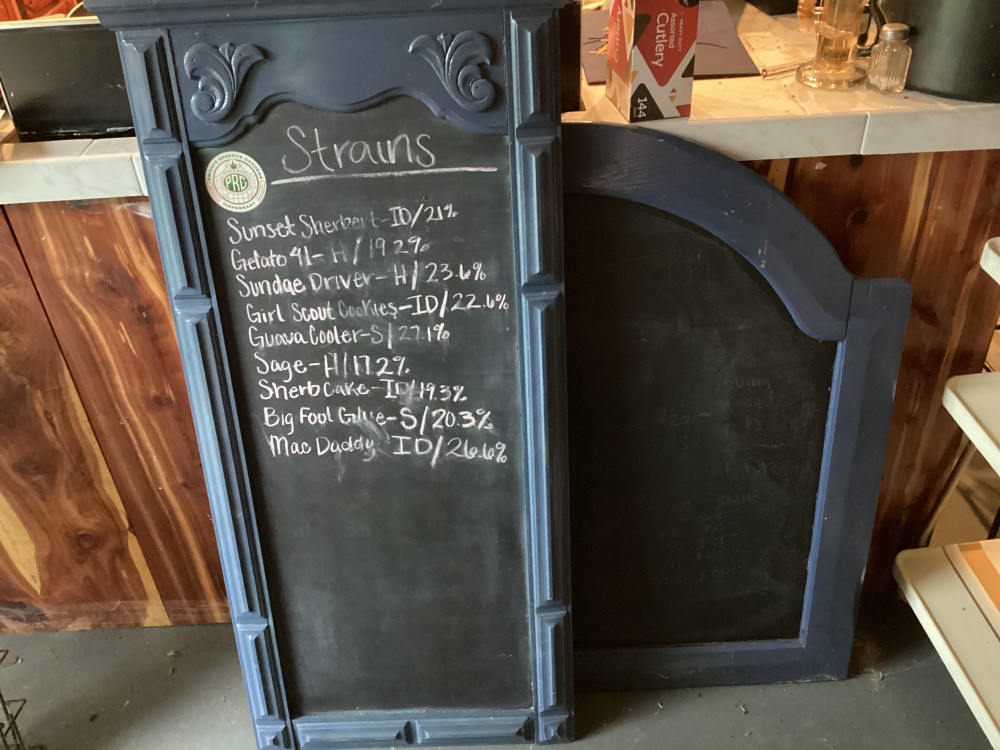 Strains
PRG
DISPENSARY
Sunset Sherbert-ID/21%
Gelato 41- H/19.2%
Sundae Driver- H/23.6%
Girl Scout Cookies-ID/22.6%
Guava Cooler-S/27.1%
Sage-H/17.2%
Sherb Cake-ID/19.3%
Big Foot Glue-S/20.3%
Mac Daddy ID/26.6%
HEAVY DUTY
Assorted
Cutlery
144